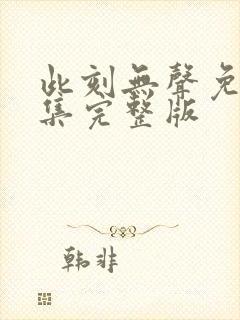 此刻無聲免
集完整版
韩非